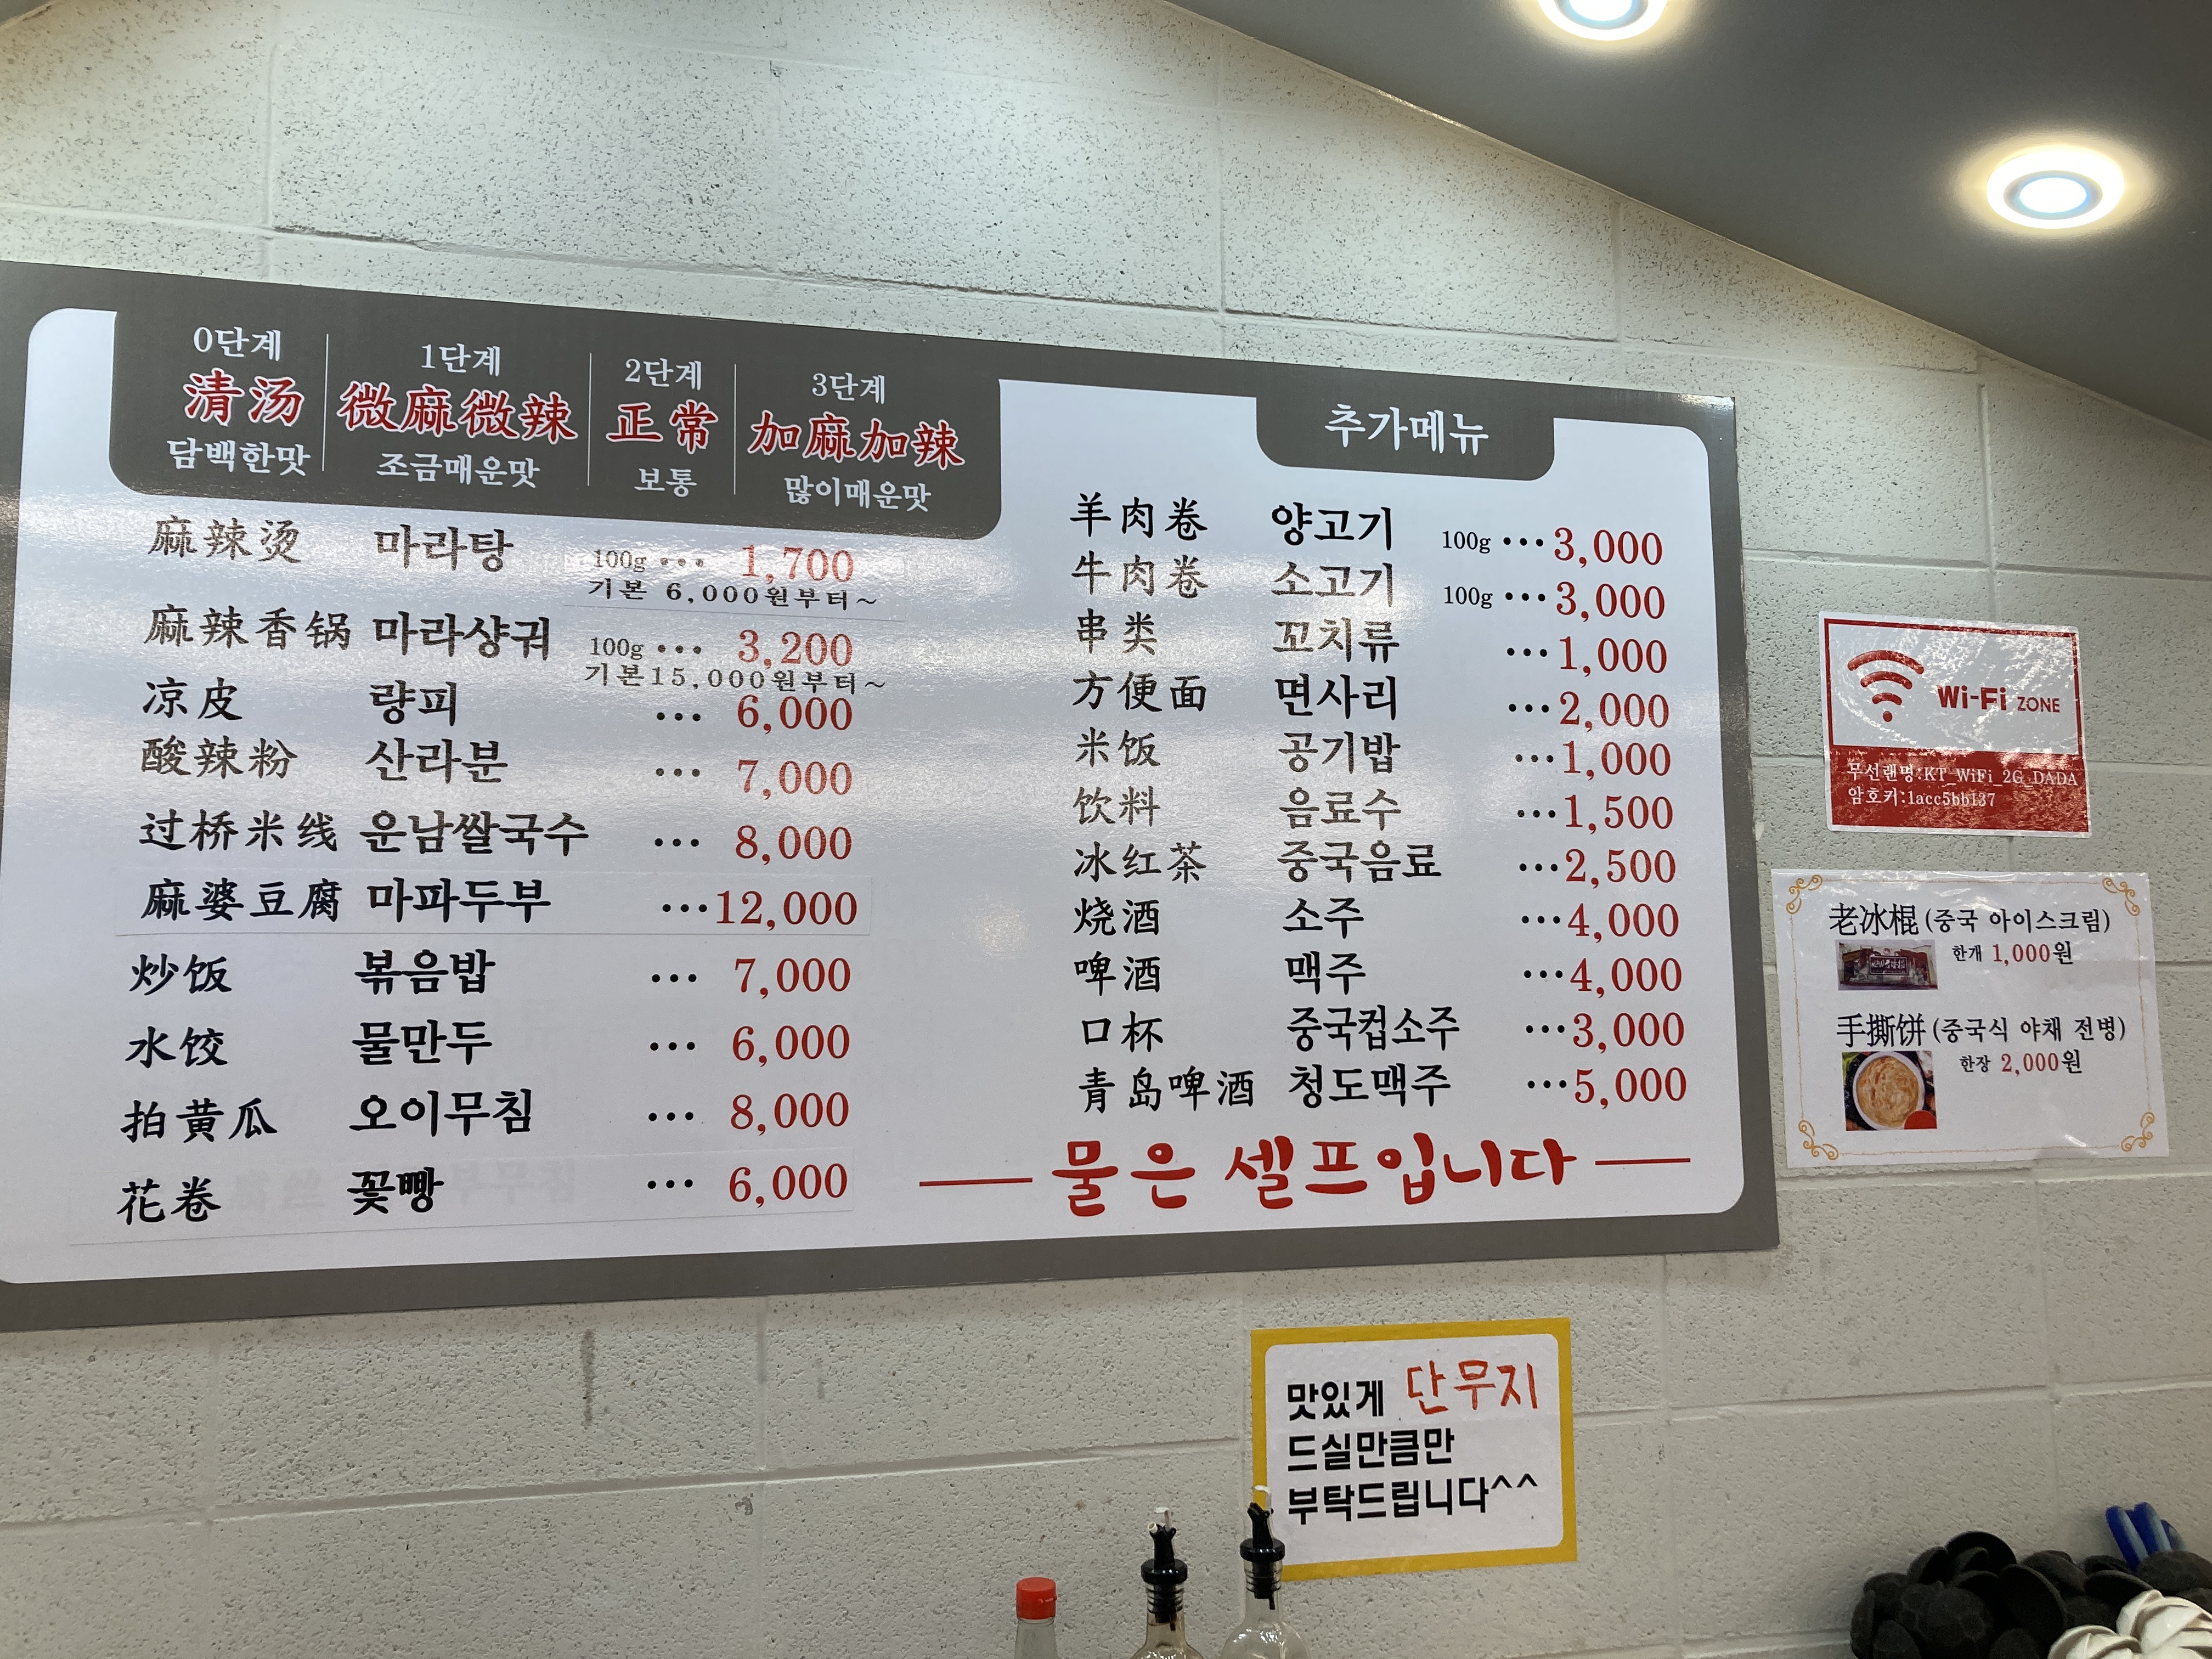 0단계
清汤
담백한맛
1단계
微麻微辣
조금매운맛
2단계
正常
보통
3단계
加麻加辣
많이매운맛
麻辣烫 마라탕 100g ··· 1,700
기본 6,000원부터~
麻辣香锅 마라샹궈 100g ··· 3,200
기본15,000원부터~
凉皮 량피 ··· 6,000
酸辣粉 산라분 ··· 7,000
过桥米线 운남쌀국수 ··· 8,000
麻婆豆腐 마파두부 ···12,000
炒饭 볶음밥 ··· 7,000
水饺 물만두 ··· 6,000
拍黄瓜 오이무침 ··· 8,000
花卷 꽃빵 ··· 6,000
추가메뉴
羊肉卷 양고기 100g ···3,000
牛肉卷 소고기 100g ···3,000
串类 꼬치류 ···1,000
方便面 면사리 ···2,000
米饭 공기밥 ···1,000
饮料 음료수 ···1,500
冰红茶 중국음료 ···2,500
烧酒 소주 ···4,000
啤酒 맥주 ···4,000
口杯 중국컵소주 ···3,000
青岛啤酒 청도맥주 ···5,000
물은 셀프입니다
Wi-Fi ZONE
무선랜명:KT_WiFi_2G_DADA
암호키:1acc5bb137
老冰棍 (중국 아이스크림)
한개 1,000원
手撕饼 (중국식 야채 전병)
한장 2,000원
맛있게 단무지
드실만큼만
부탁드립니다^^